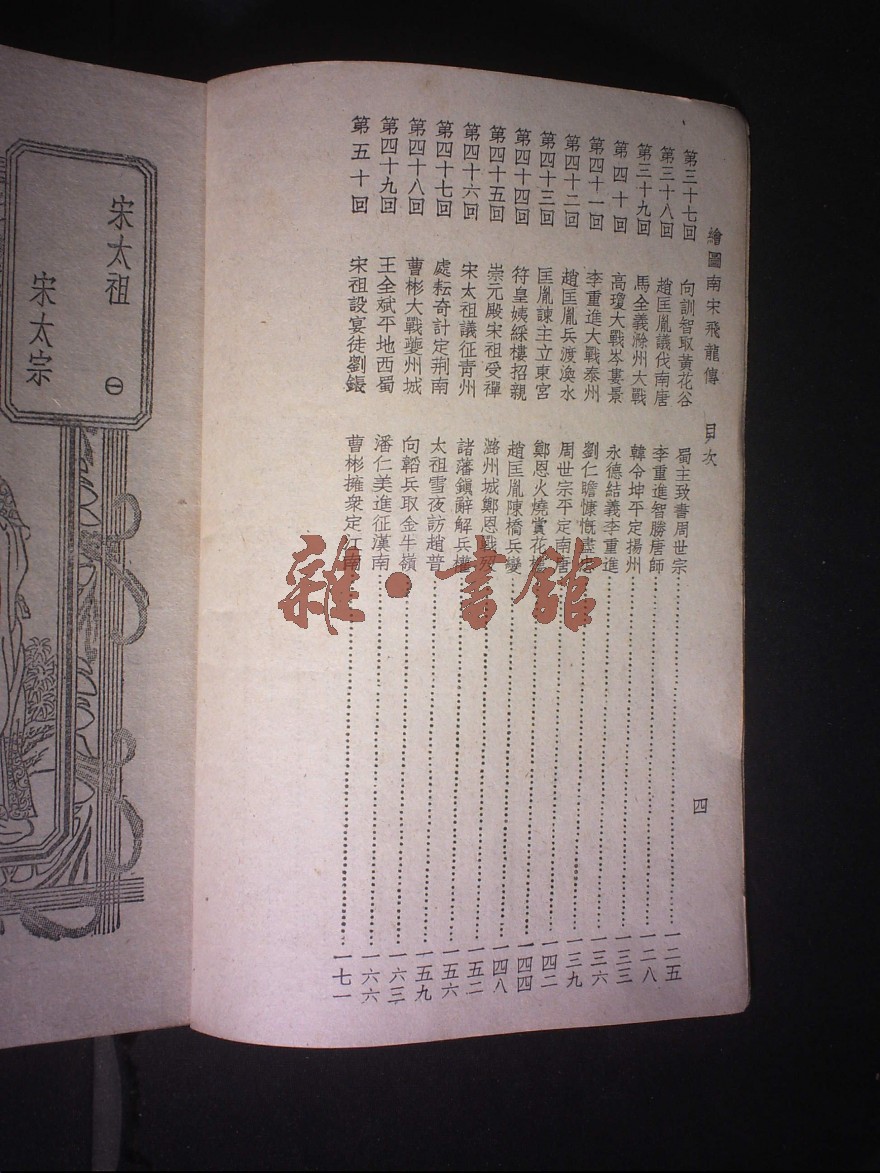 繪圖南宋飛龍傳 目次 四
第三十七回 向訓智取黃花谷 蜀主致書周世宗 一二五
第三十八回 趙匡胤議伐南唐 李重進智勝唐師 一二八
第三十九回 馬全義滁州大戰 韓令坤平定揚州 一三三
第四十回 高瓊大戰岑婁景 永德結義李重進 一三六
第四十一回 李重進大戰泰州 劉仁瞻慷慨盡忠 一三九
第四十二回 趙匡胤兵渡渙水 周世宗平定南唐 一四二
第四十三回 匡胤諫主立東宮 鄭恩火燒賞花樓 一四四
第四十四回 符皇姨綵樓招親 趙匡胤陳橋兵變 一四八
第四十五回 崇元殿宋祖受禪 潞州城鄭恩戰歿 一五二
第四十六回 宋太祖議征青州 諸藩鎮辭解兵權 一五六
第四十七回 處耘奇計定荊南 太祖雪夜訪趙普 一五九
第四十八回 曹彬大戰夔州城 向韜兵取金牛嶺 一六三
第四十九回 王全斌平地西蜀 潘仁美進征漢南 一六六
第五十回 宋祖設宴徒劉鋹 曹彬擁衆定江南 一七一
宋太祖
宋太宗
㊀
雜·書館